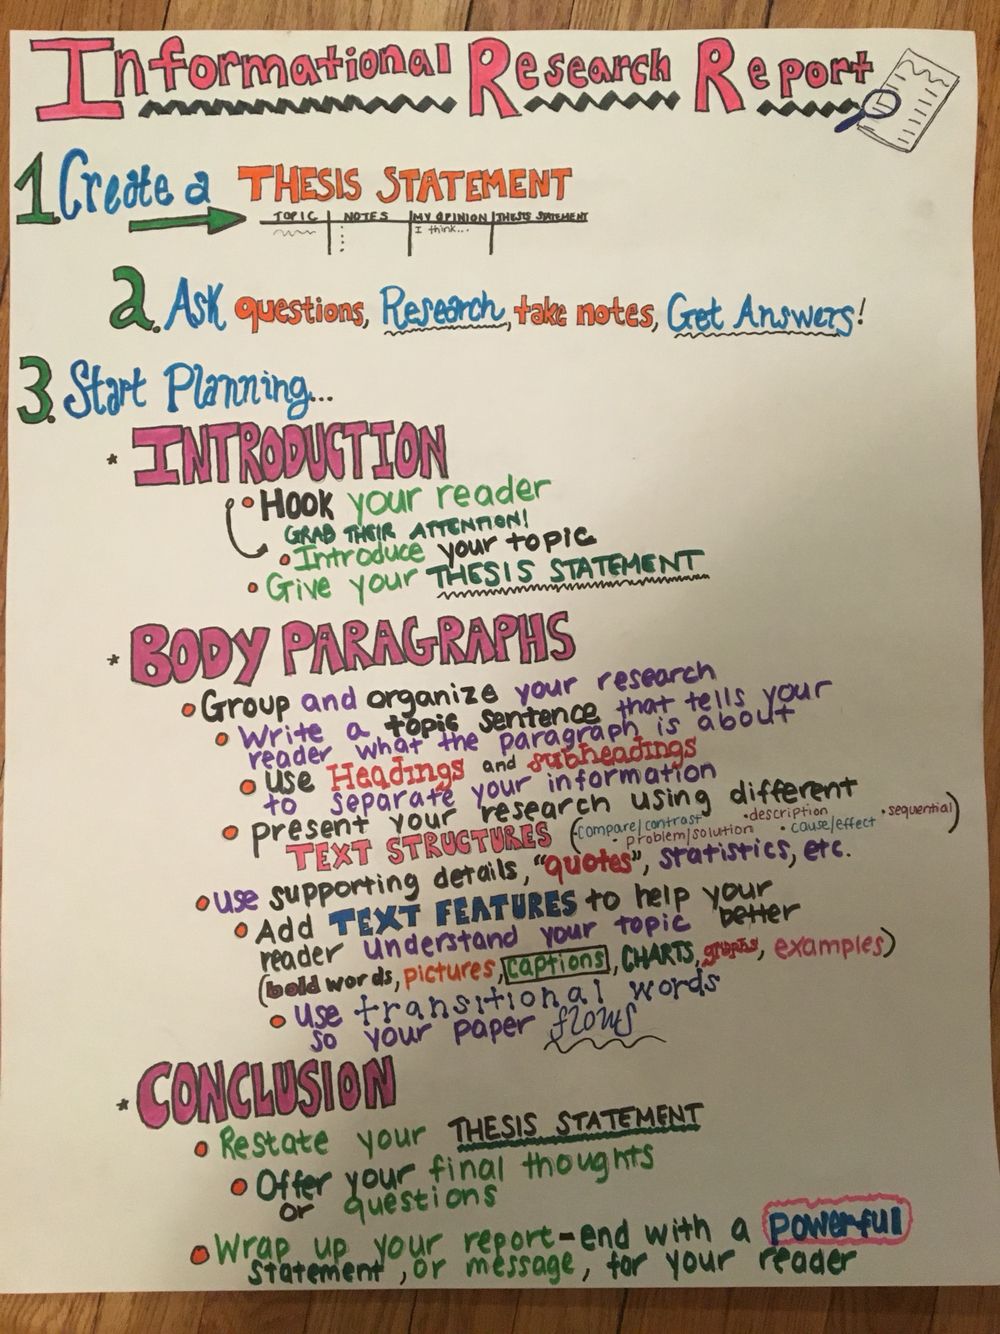 Informational Research Report
1. Create a THESIS STATEMENT
TOPIC NOTES MY OPINION THESIS STATEMENT
I think...
2. Ask questions, Research, take notes, Get Answers!
3. Start Planning...
* INTRODUCTION
• Hook your reader
GRAB THEIR ATTENTION!
• Introduce your topic
• Give your THESIS STATEMENT
* BODY PARAGRAPHS
• Group and organize your research
• Write a topic sentence that tells your
reader what the paragraph is about
• use Headings and subheadings
to separate your information
• present your research using different
TEXT STRUCTURES (compare/contrast • description • sequential)
• problem/solution • cause/effect
• use supporting details, "quotes", statistics, etc.
• Add TEXT FEATURES to help your
reader understand your topic better
(bold words, pictures, captions, CHARTS, graphs, examples)
• use transitional words
so your paper flows
* CONCLUSION
• Restate your THESIS STATEMENT
• Offer your final thoughts
or questions
• Wrap up your report - end with a powerful
statement, or message, for your reader